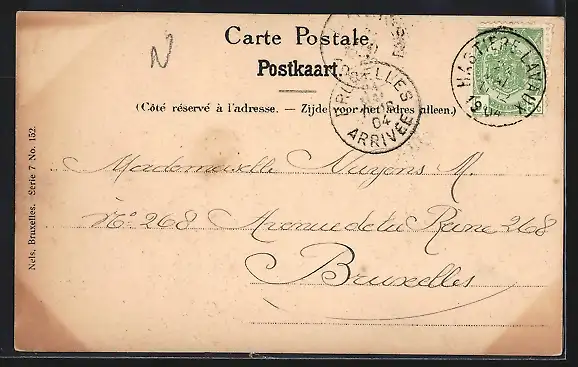 N
Carte Postale
Postkaart.
(Côté réservé à l'adresse. — Zijde voor het adres alleen.)
HASTIÈRE-LAVAUX
1904
BRUXELLES
04
ARRIVÉE
Mademoiselle Nuyens M.
N° 268 Avenue de la Reine 268
Bruxelles
Nels, Bruxelles. Série 7 No. 152.